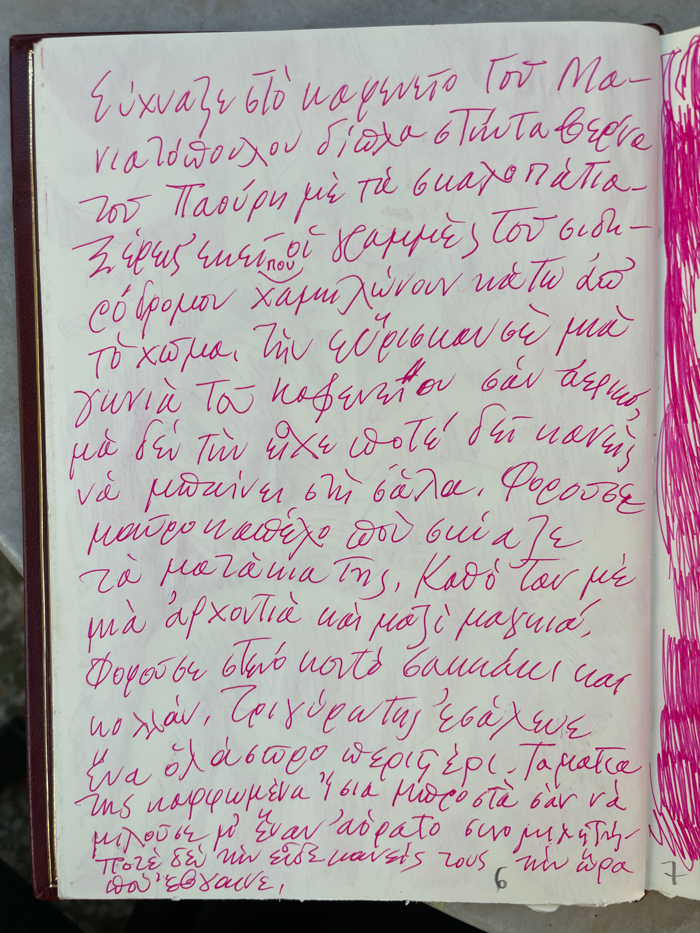 Σύχναζε στὸ καφενεῖο τοῦ Μα-
νιατόπουλου δίπλα στὴν ταβέρνα
τοῦ Παούρη μὲ τὰ σκαλοπάτια-
Ξέρεις ἐκεῖ ποὺ οἱ γραμμὲς τοῦ σιδη-
ρόδρομου χαμηλώνουν κάτω ἀπ'
τὸ χῶμα. Τὴν εὕρισκαν σὲ μιὰ
γωνιὰ τοῦ καφενείου σὰν ἀερικό,
μὰ δὲν τὴν εἶχε ποτέ δεῖ κανεὶς
νὰ μπαίνει στὴ σάλα. Φοροῦσε
μαῦρο καπέλο ποὺ σκίαζε
τὰ ματάκια της. Καθόταν μὲ
μιὰ ἀρχοντιὰ καὶ μαζὶ μαγκιά.
Φοροῦσε στενό κοντό σακκάκι και
κολλάν. Τριγύρω της ἐσάλευε
ἕνα ὁλάσπρο περιστέρι. Τα μάτια
της καρφωμένα ἴσια μπροστὰ σὰν νὰ
μιλοῦσε μ' ἕναν ἀόρατο συνομιλητή-
Ποτὲ δὲν τὴν εἶδε κανείς τους τὴν ὥρα
ποὺ ἔβγαινε.
6
7